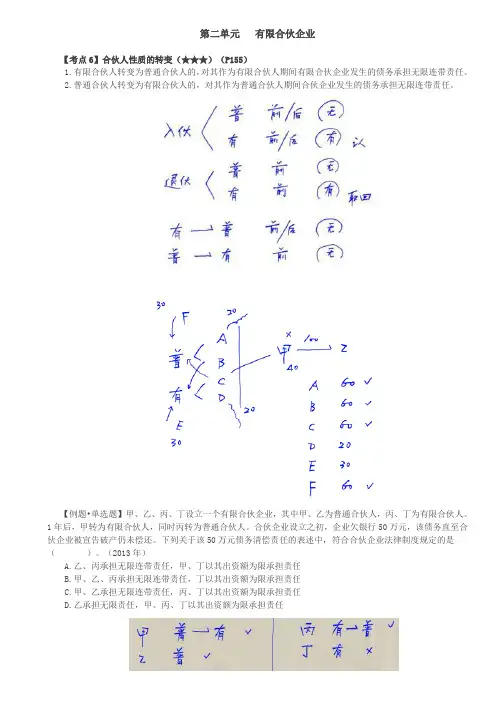 第二单元 有限合伙企业
【考点6】合伙人性质的转变（★★★）（P155）
1.有限合伙人转变为普通合伙人的，对其作为有限合伙人期间有限合伙企业发生的债务承担无限连带责任。
2.普通合伙人转变为有限合伙人的，对其作为普通合伙人期间合伙企业发生的债务承担无限连带责任。
入伙 普 前/后 无
有 前/后 有 认
退伙 普 前 无
有 前 有 取回
有→普 前/后 无
普→有 前 无
30
F
20
普
A
B
C
D
有
E
30
20
甲 × 100 乙
40
A 60 ✓
B 60 ✓
C 60 ✓
D 20
E 30
F 60 ✓
【例题•单选题】甲、乙、丙、丁设立一个有限合伙企业，其中甲、乙为普通合伙人，丙、丁为有限合伙人。
1年后，甲转为有限合伙人，同时丙转为普通合伙人。合伙企业设立之初，企业欠银行50万元，该债务直至合
伙企业被宣告破产仍未偿还。下列关于该50万元债务清偿责任的表述中，符合合伙企业法律制度规定的是
（ ）。（2013年）
A.乙、丙承担无限连带责任，甲、丁以其出资额为限承担责任
B.甲、乙、丙承担无限连带责任，丁以其出资额为限承担责任
C.甲、乙承担无限连带责任，丙、丁以其出资额为限承担责任
D.乙承担无限责任，甲、丙、丁以其出资额为限承担责任
甲 普→有 ✓ 丙 有→普 ✓
乙 普 ✓ 丁 有 ×